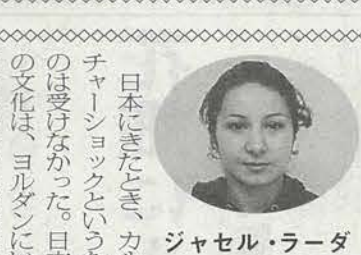 ジャセル・ラーダ
日本にきたとき、カル
チャーショックという
のは受けなかった。日
の文化は、ヨルダンに